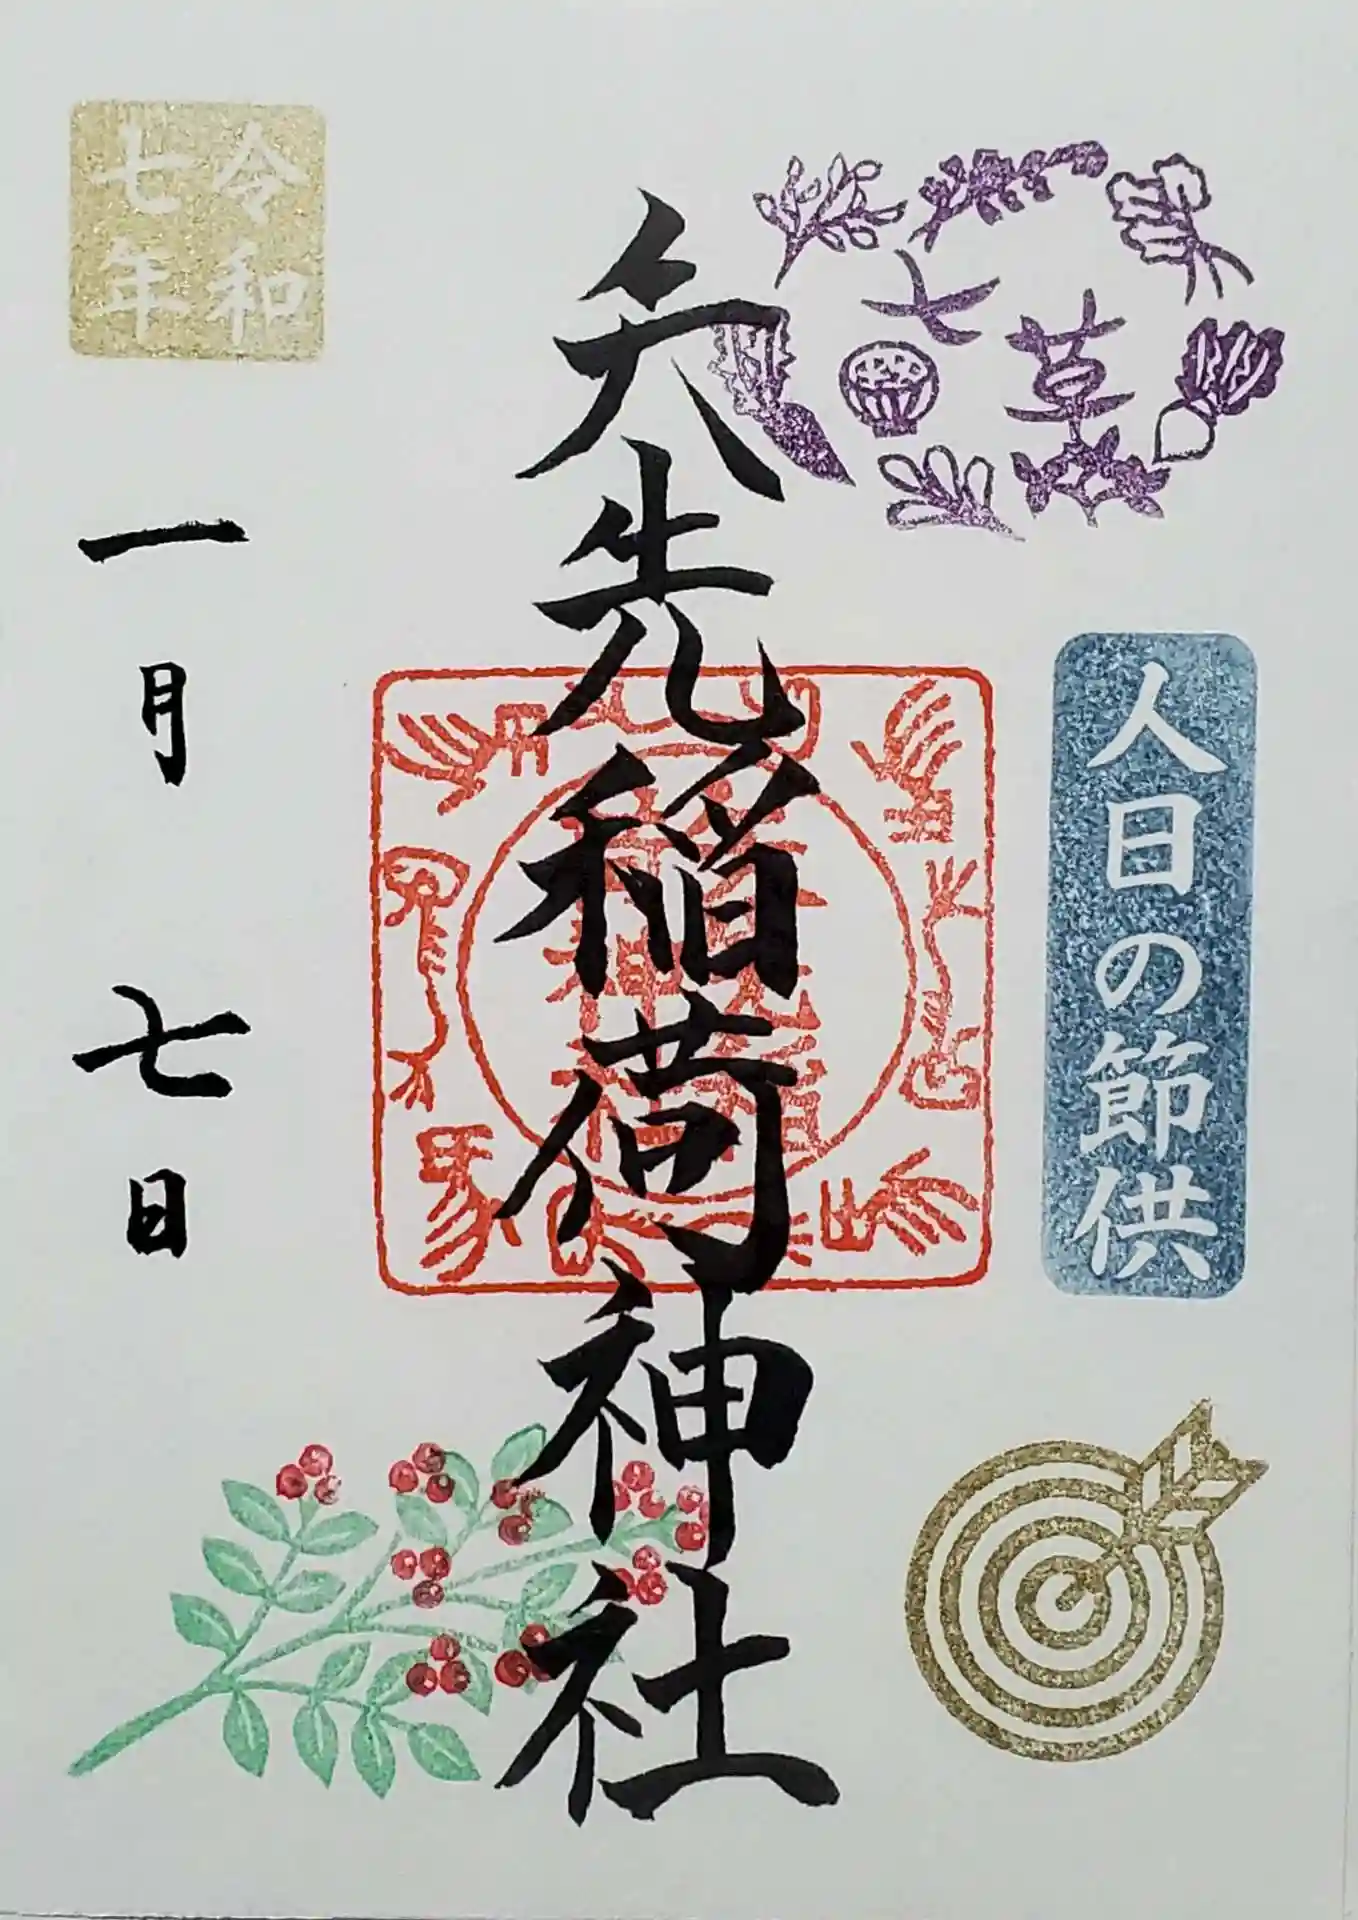 七草
人日の節供
矢先稲荷神社
令和
七年
一月七日